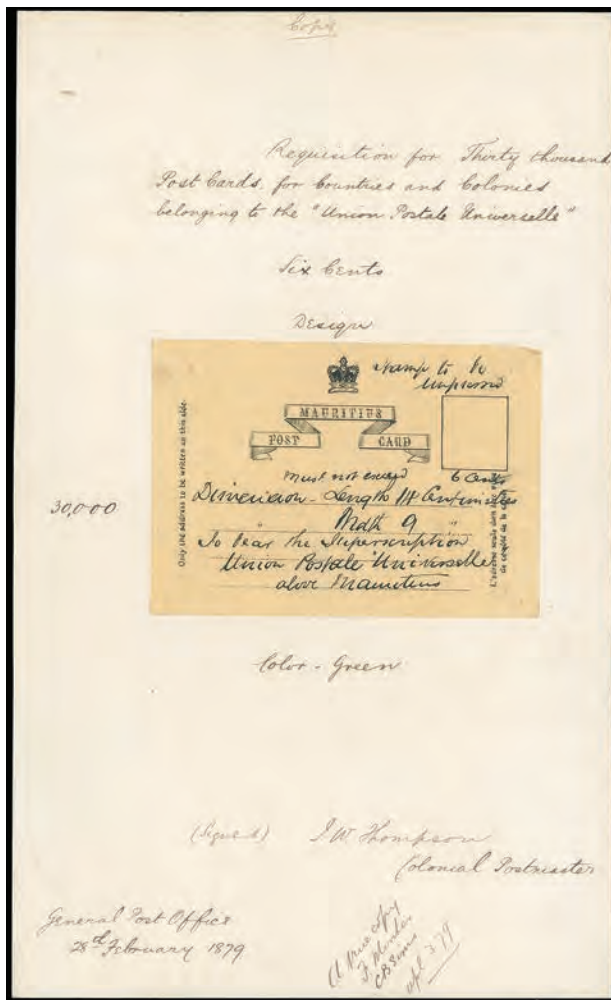 Copy
Requisition for Thirty thousand
Post Cards, for Countries and Colonies
belonging to the "Union Postale Universelle"
Six Cents
Design
Stamp to be
impressed
MAURITIUS
POST CARD
Only the address to be written on this side.
6 Cents
must not exceed
Dimension - Length 14 Centimetres
" Width 9 "
To bear the Superscription
Union Postale Universelle
above Mauritius
L'adresse seule doit être
de ce côté de la
30,000
Color - Green
(Signed) J.W. Thompson
Colonial Postmaster
General Post Office
28th February 1879
A true copy
F.
CB
3 79